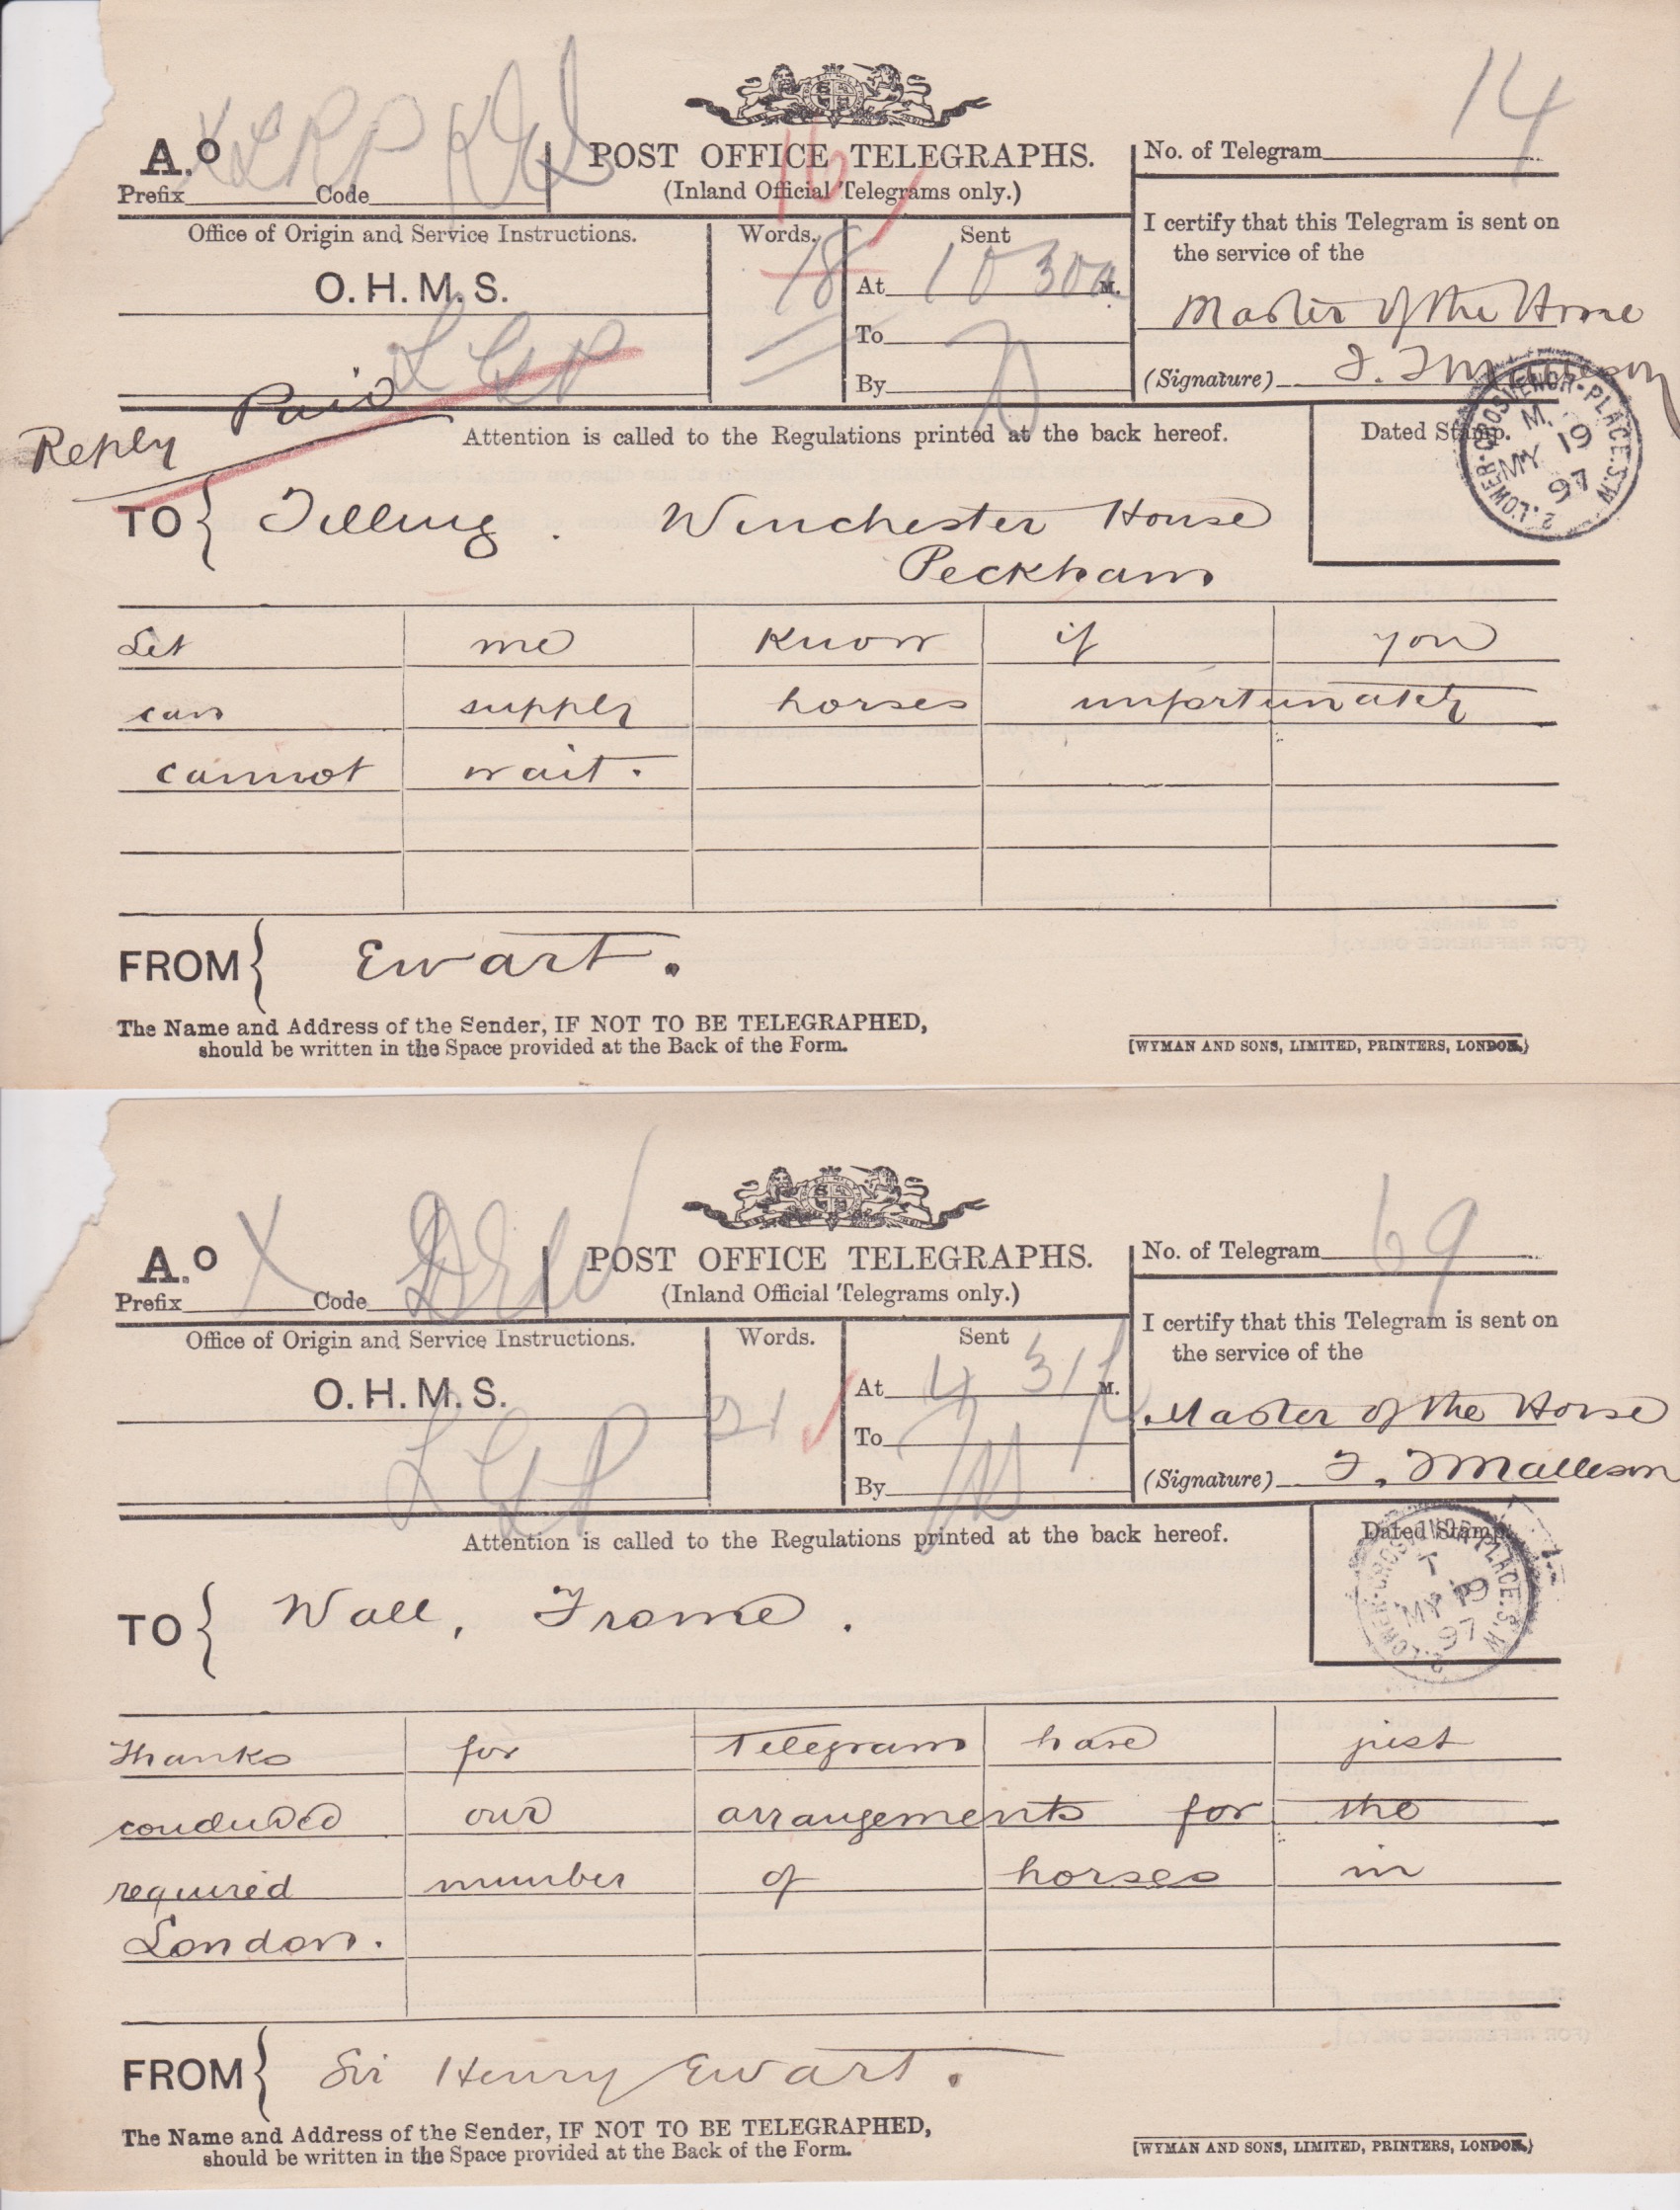 14
A.º
XLRP
POST OFFICE TELEGRAPHS.
No. of Telegram
Prefix Code
(Inland Official Telegrams only.)
16
I certify that this Telegram is sent on
the service of the
Office of Origin and Service Instructions.
Words.
Sent
O.H.M.S.
18
At 10 30a M.
Master of the Horse
LGP
To
By
(Signature) F. T Malleson
Reply Paid
Attention is called to the Regulations printed at the back hereof.
Dated Stamp.
2. LOWER-GROSVENOR-PLACE. S.W
M.
MY 19
97
TO Tilling. Winchester House
Peckham
Let me know if you
can supply horses unfortunately
cannot wait.
FROM Ewart.
The Name and Address of the Sender, IF NOT TO BE TELEGRAPHED,
should be written in the Space provided at the Back of the Form.
[WYMAN AND SONS, LIMITED, PRINTERS, LONDON.]
69
A.º
X
POST OFFICE TELEGRAPHS.
No. of Telegram
Prefix Code
(Inland Official Telegrams only.)
I certify that this Telegram is sent on
the service of the
Office of Origin and Service Instructions.
Words.
Sent
O.H.M.S.
21
At 4 31 p M.
Master of the Horse
LGP
To
By
(Signature) F. T Malleson
Attention is called to the Regulations printed at the back hereof.
Dated Stamp.
2. LOWER-GROSVENOR-PLACE. S.W
MY 19
97
TO Wall, Frome.
Thanks for Telegram have just
concluded our arrangements for the
required number of horses in
London.
FROM Sir Henry Ewart.
The Name and Address of the Sender, IF NOT TO BE TELEGRAPHED,
should be written in the Space provided at the Back of the Form.
[WYMAN AND SONS, LIMITED, PRINTERS, LONDON.]